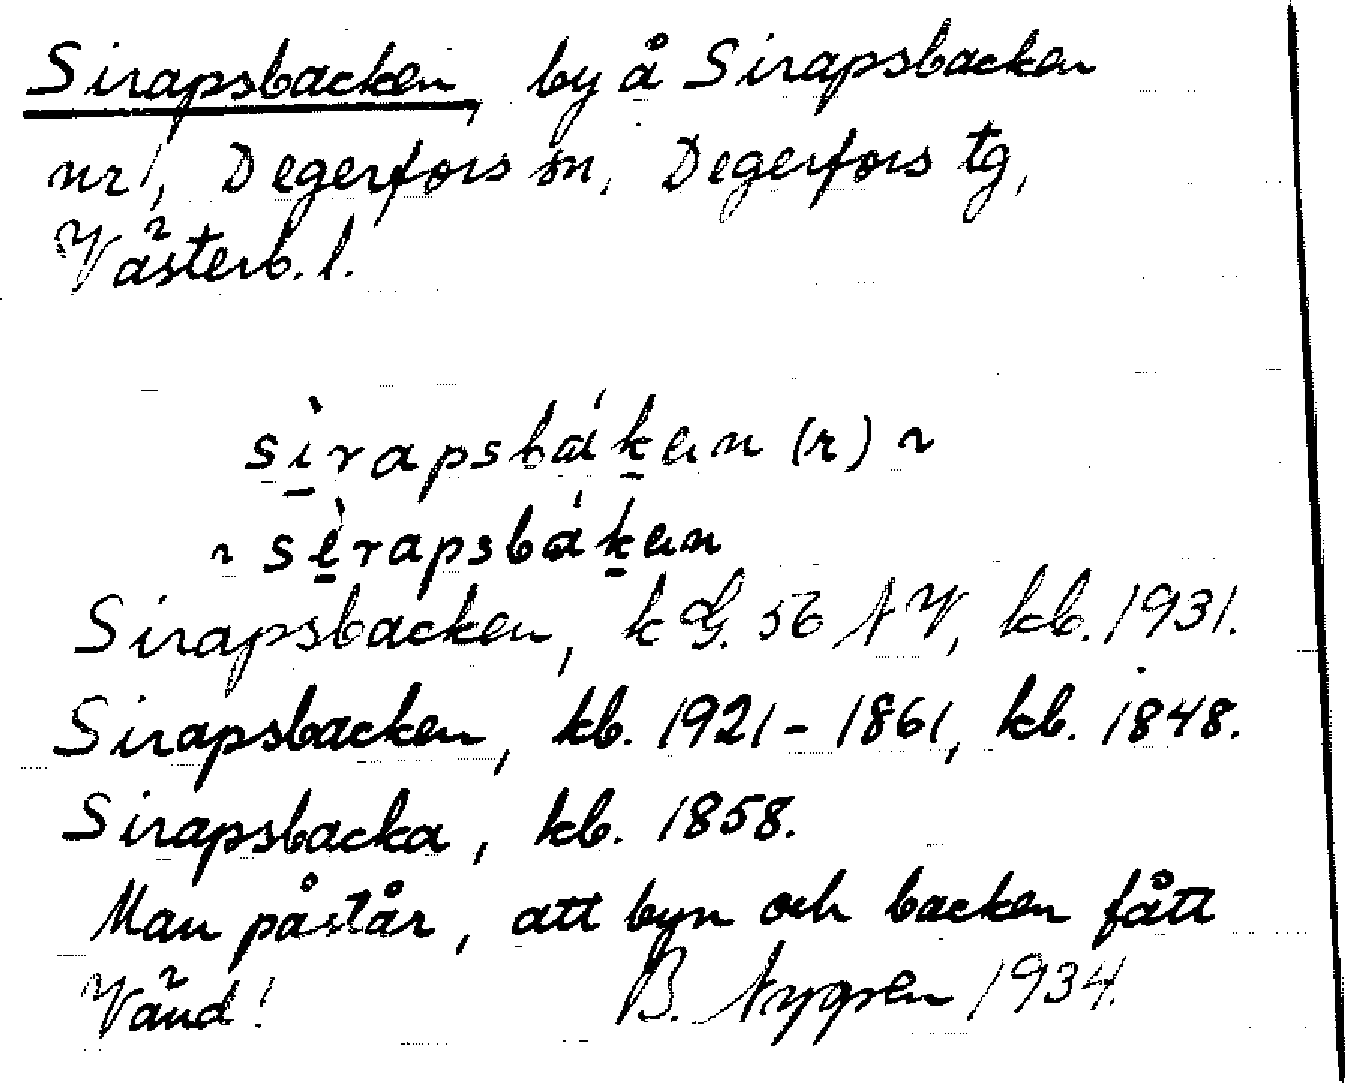 Sirapsbacken, by å Sirapsbacken
nr 1, Degerfors sn, Degerfors tg,
Västerb. l.
sìrapsbáken (r) ~
~ sèrapsbáken
Sirapsbacken, k G. 56 NV, kb. 1931.
Sirapsbacken, kb. 1921-1861, kb. 1848.
Sirapsbacka, kb. 1858.
Man påstår, att byn och backen fått
Vänd! B. Nygren 1934.